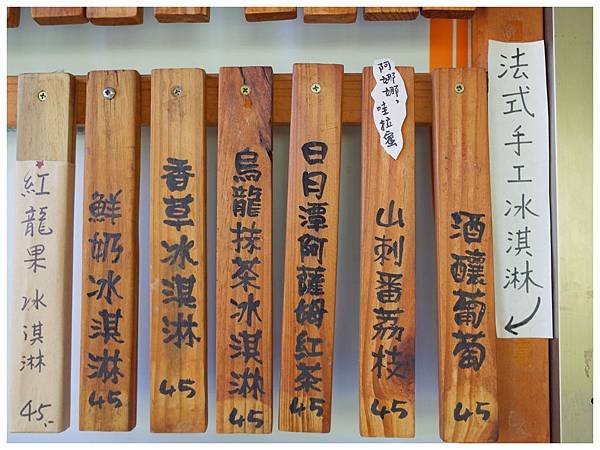 法式手工冰淇淋
酒釀葡萄
45
阿娜娜，
哇拉蜜
山刺番荔枝
45
日月潭阿薩姆紅茶
45
烏龍抹茶冰淇淋
45
香草冰淇淋
45
鮮奶冰淇淋
45
紅龍果冰淇淋
45.